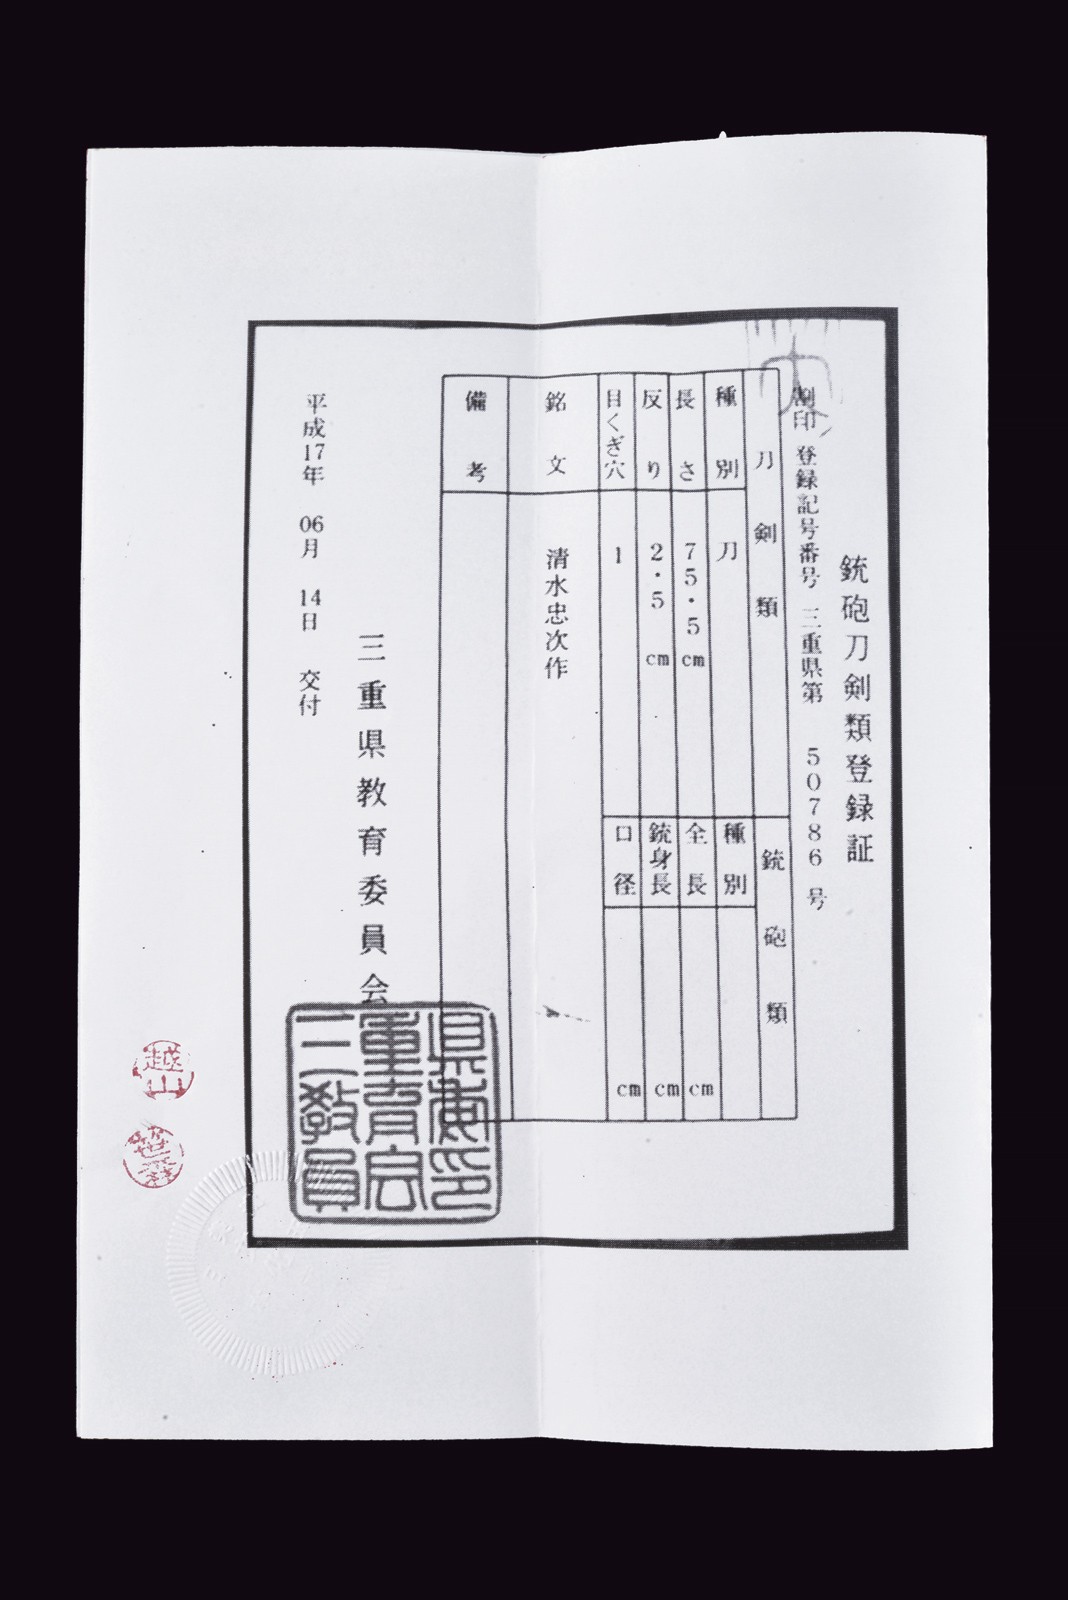 銃砲刀剣類登録証
割印 登録記号番号 三重県第 50786 号
刀剣類
銃砲類
種別 刀
種別
長さ 75.5cm
全長 cm
反り 2.5 cm
銃身長 cm
目くぎ穴 1
口径 cm
銘文 清水忠次作
備考
三重県教育委員会
平成17年 06月 14日 交付
県委印
重育会
三教員
越山